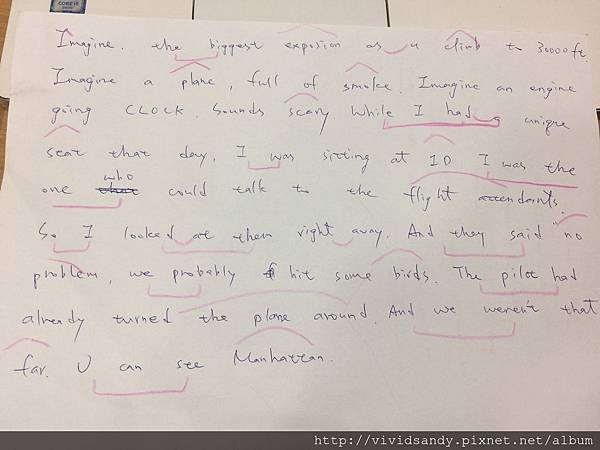 CORE i5
Imagine. the biggest exposion as u climb to 30000ft
Imagine a plane, full of smoke. Imagine an engine
going CLOCK. Sounds scary While I had a unique
seat that day, I was sitting at 1D I was the
who
one that could talk to the flight attendants.
So I looked at them right away. And they said "no
problem, we probably hit some birds. The pilot had
already turned the plane around. And we weren't that
far. U can see Manhattan.
http://vividsandy.pixnet.net/album